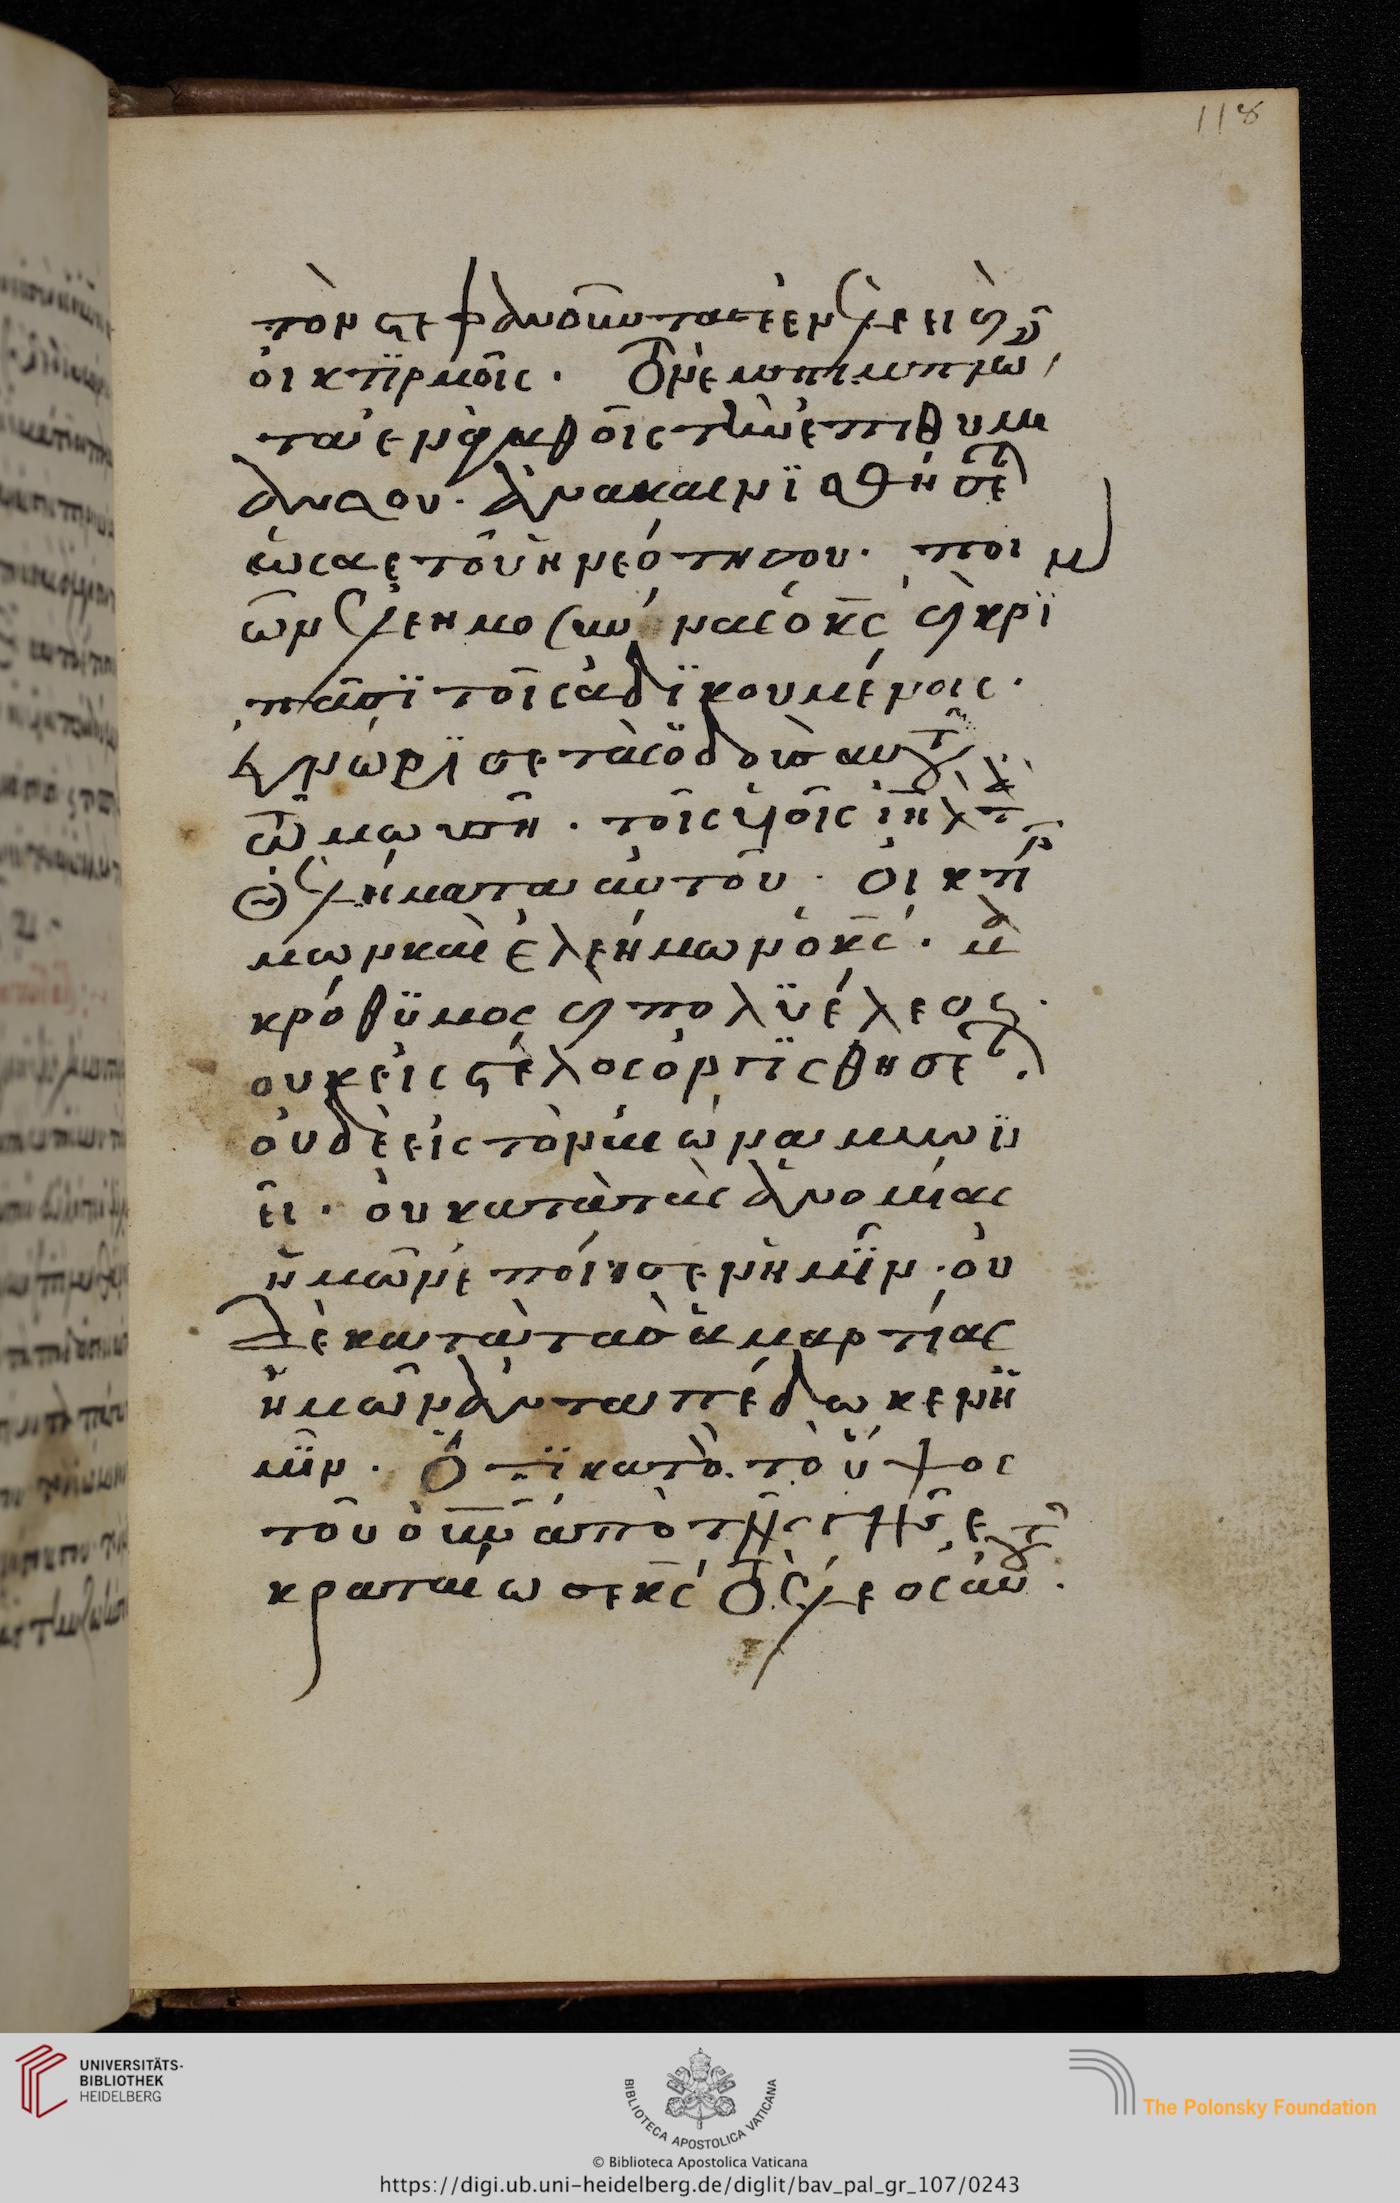 118
τὸν στεφανοῦντα σε ἐν ἐλέει καὶ
οἰκτϊρμοῖς. Τὸν ἐμπιμπλῶ
τα ἐν ἀγαθοῖς τὴν ἐπιθυμ
αν σου. ἀνακαινϊσθήσεται
ὡς ἀετοῦ ἡ νεότης σου. ποι
ῶν ἐλεημοσύνας ὁ κς καὶ κρῖ
πᾶσϊ τοῖς ἀδϊκουμένοις.
ἐγνώρϊσε τὰς ὁδοὺς αὐτοῦ
τῶ μωυσῆ. τοῖς υἱοῖς ιηλ τὰ
θελήματα αὐτοῦ. οἰκτίρ
μων καὶ ἐλεήμων ὁ κς. μα
κρόθϋμος καὶ πολϋέλεος.
οὐκ εἰς τέλος ὀργϊσθήσεται.
οὐδὲ εἰς τὸν αἰῶνα μηνϋ
εῖ. οὐ κατὰ τὰς ἀνομίας
ἡμῶν ἐποίησεν ἡμῖν. οὐ
δὲ κατὰ τὰς ἁμαρτίας
ἡμῶν ἀνταπέδωκεν ἡ
μῖν. Ὅτϊ κατὰ τὸ ὕψος
τοῦ οὐνοῦ ἀπὸ τῆς γῆς, ε
κραταίωσε κς τὸ ἔλεος αὐτοῦ.
UNIVERSITÄTS-
BIBLIOTHEK
HEIDELBERG
BIBLIOTECA APOSTOLICA VATICANA
The Polonsky Foundation
© Biblioteca Apostolica Vaticana
https://digi.ub.uni-heidelberg.de/diglit/bav_pal_gr_107/0243